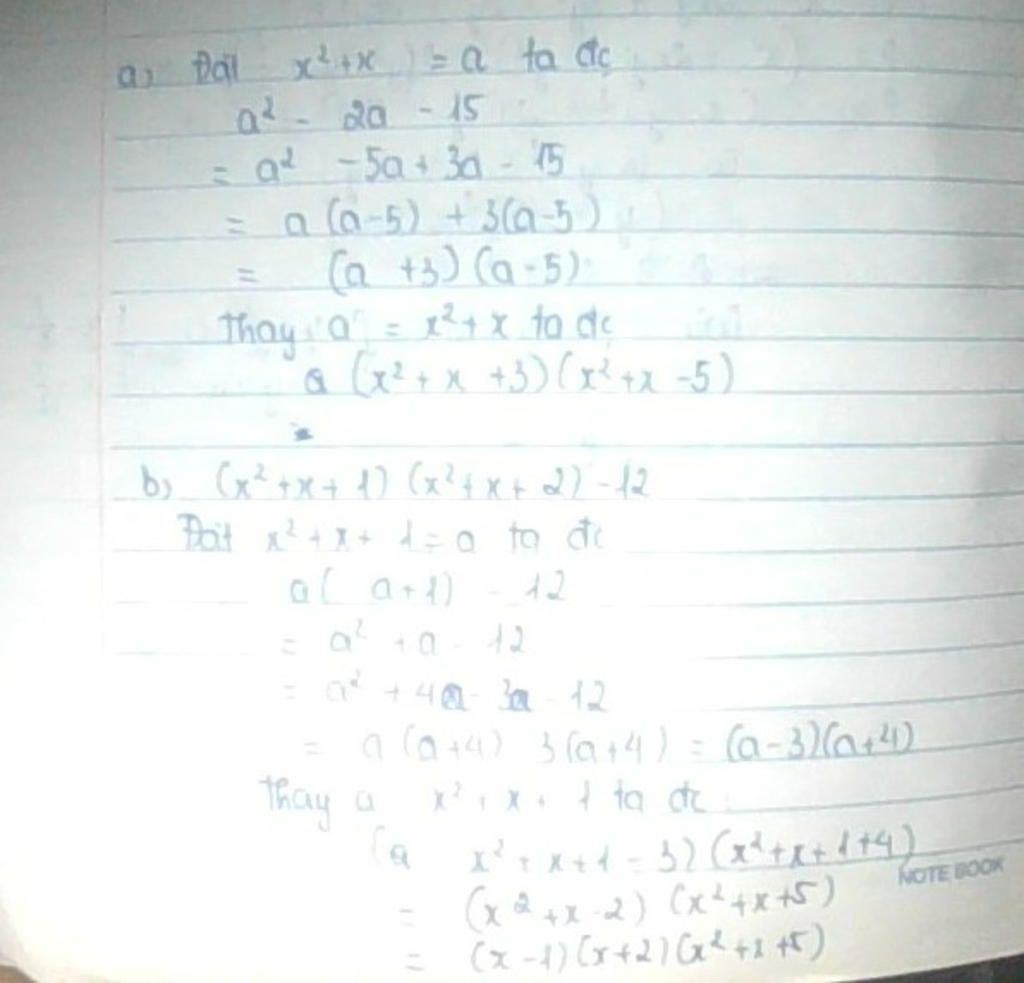 a, Đặt x² + x = a ta đc
a² - 2a - 15
= a² - 5a + 3a - 15
= a (a-5) + 3(a-5)
= (a +3) (a-5)
Thay a = x² + x ta đc
(x² + x +3) (x² + x -5)
b, (x² + x + 1) (x² + x + 2) - 12
Đặt x² + x + 1 = a ta đc
a( a+1) - 12
= a² + a - 12
= a² + 4a - 3a - 12
= a (a+4) 3(a+4) = (a-3)(a+4)
Thay a x² + x + 1 ta đc
( x² + x + 1 - 3) (x² + x + 1 + 4)
NOTE BOOK
= (x² + x - 2) (x² + x + 5)
= (x - 1) (x + 2) (x² + x + 5)